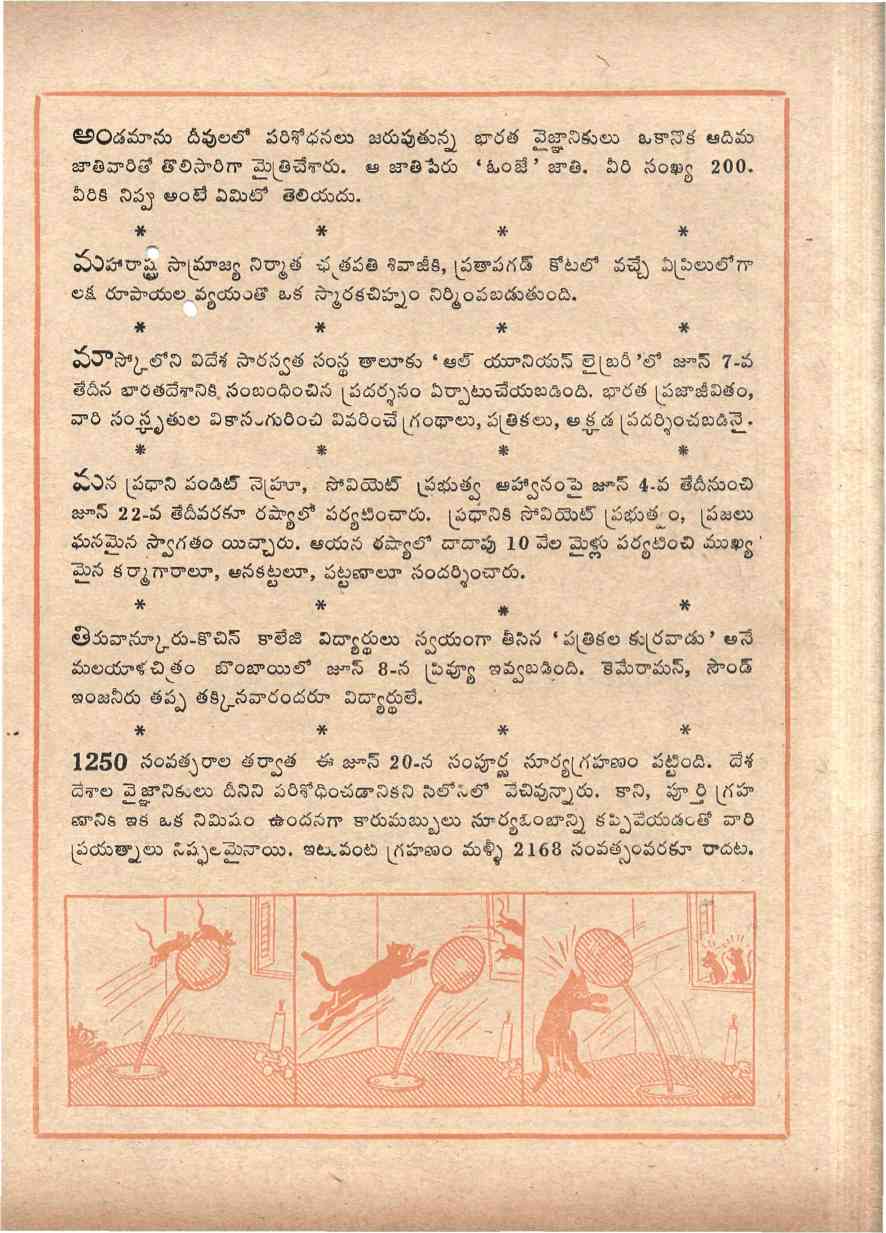 అండమాను దీవులలో పరిశోధనలు జరుపుతున్న భారత వైజ్ఞానికులు ఒకానొక ఆదిమ
జాతివారితో తొలిసారిగా మైత్రిచేశారు. ఆ జాతి పేరు ‘ఓంజే’ జాతి. వీరి సంఖ్య 200.
వీరికి నిప్పు అంటే ఏమిటో తెలియదు.
* * * *
మహారాష్ట్ర సామ్రాజ్య నిర్మాత ఛత్రపతి శివాజీకి, ప్రతాపగడ్ కోటలో వచ్చే ఏప్రిలులోగా
లక్ష రూపాయల వ్యయంతో ఒక స్మారకచిహ్నం నిర్మింపబడుతుంది.
* * * *
మాస్కోలోని విదేశ సారస్వత సంస్థ తాలూకు ‘ఆల్ యూనియన్ లైబ్రరీ’లో జూన్ 7-వ
తేదీన భారతదేశానికి సంబంధించిన ప్రదర్శనం ఏర్పాటుచేయబడింది. భారత ప్రజాజీవితం,
వారి సంస్కృతుల వికాసంగురించి వివరించే గ్రంథాలు, పత్రికలు, అక్కడ ప్రదర్శించబడినై.
* * * *
మన ప్రధాని పండిట్ నెహ్రూ, సోవియెట్ ప్రభుత్వ ఆహ్వానంపై జూన్ 4-వ తేదీనుంచి
జూన్ 22-వ తేదీవరకూ రష్యాలో పర్యటించారు. ప్రధానికి సోవియెట్ ప్రభుత్వం, ప్రజలు
ఘనమైన స్వాగతం యిచ్చారు. ఆయన రష్యాలో దాదాపు 10 వేల మైళ్లు పర్యటించి ముఖ్య
మైన కర్మాగారాలూ, ఆనకట్టలూ, పట్టణాలూ సందర్శించారు.
* * * *
తిరువాన్కూరు-కొచిన్ కాలేజి విద్యార్థులు స్వయంగా తీసిన ‘పత్రికల కుర్రవాడు’ అనే
మలయాళచిత్రం బొంబాయిలో జూన్ 8-న ప్రివ్యూ ఇవ్వబడింది. కెమేరామన్, సౌండ్
ఇంజనీరు తప్ప తక్కినవారందరూ విద్యార్థులే.
* * * *
1250 సంవత్సరాల తర్వాత ఈ జూన్ 20-న సంపూర్ణ సూర్యగ్రహణం పట్టింది. దేశ
దేశాల వైజ్ఞానికులు దీనిని పరిశోధించడానికని సిలోన్‌లో వేచివున్నారు. కాని, పూర్తి గ్రహ
ణానికి ఇక ఒక నిమిషం ఉందనగా కారుమబ్బులు సూర్యబింబాన్ని కప్పివేయడంతో వారి
ప్రయత్నాలు నిష్ఫలమైనాయి. ఇటువంటి గ్రహణం మళ్ళీ 2168 సంవత్సంవరకూ రాదట.